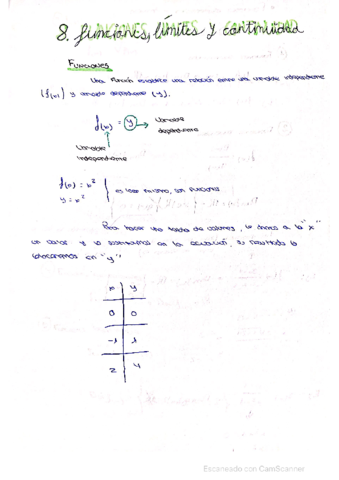 8. funciones, límites y continuidad
FUNCIONES
Una función establece una relación entre una variable independiente
(f(x)) y dependiente (y).
f(x) = y → Variable
dependiente
Variable
independiente
f(x) = x²
y = x²
es lo mismo, son funciones
Para hacer una tabla de valores, le damos a la "x"
un valor y lo sustituimos en la ecuación, el resultado lo
colocamos en "y"
x y
0 0
-1 1
2 4
Escaneado con CamScanner